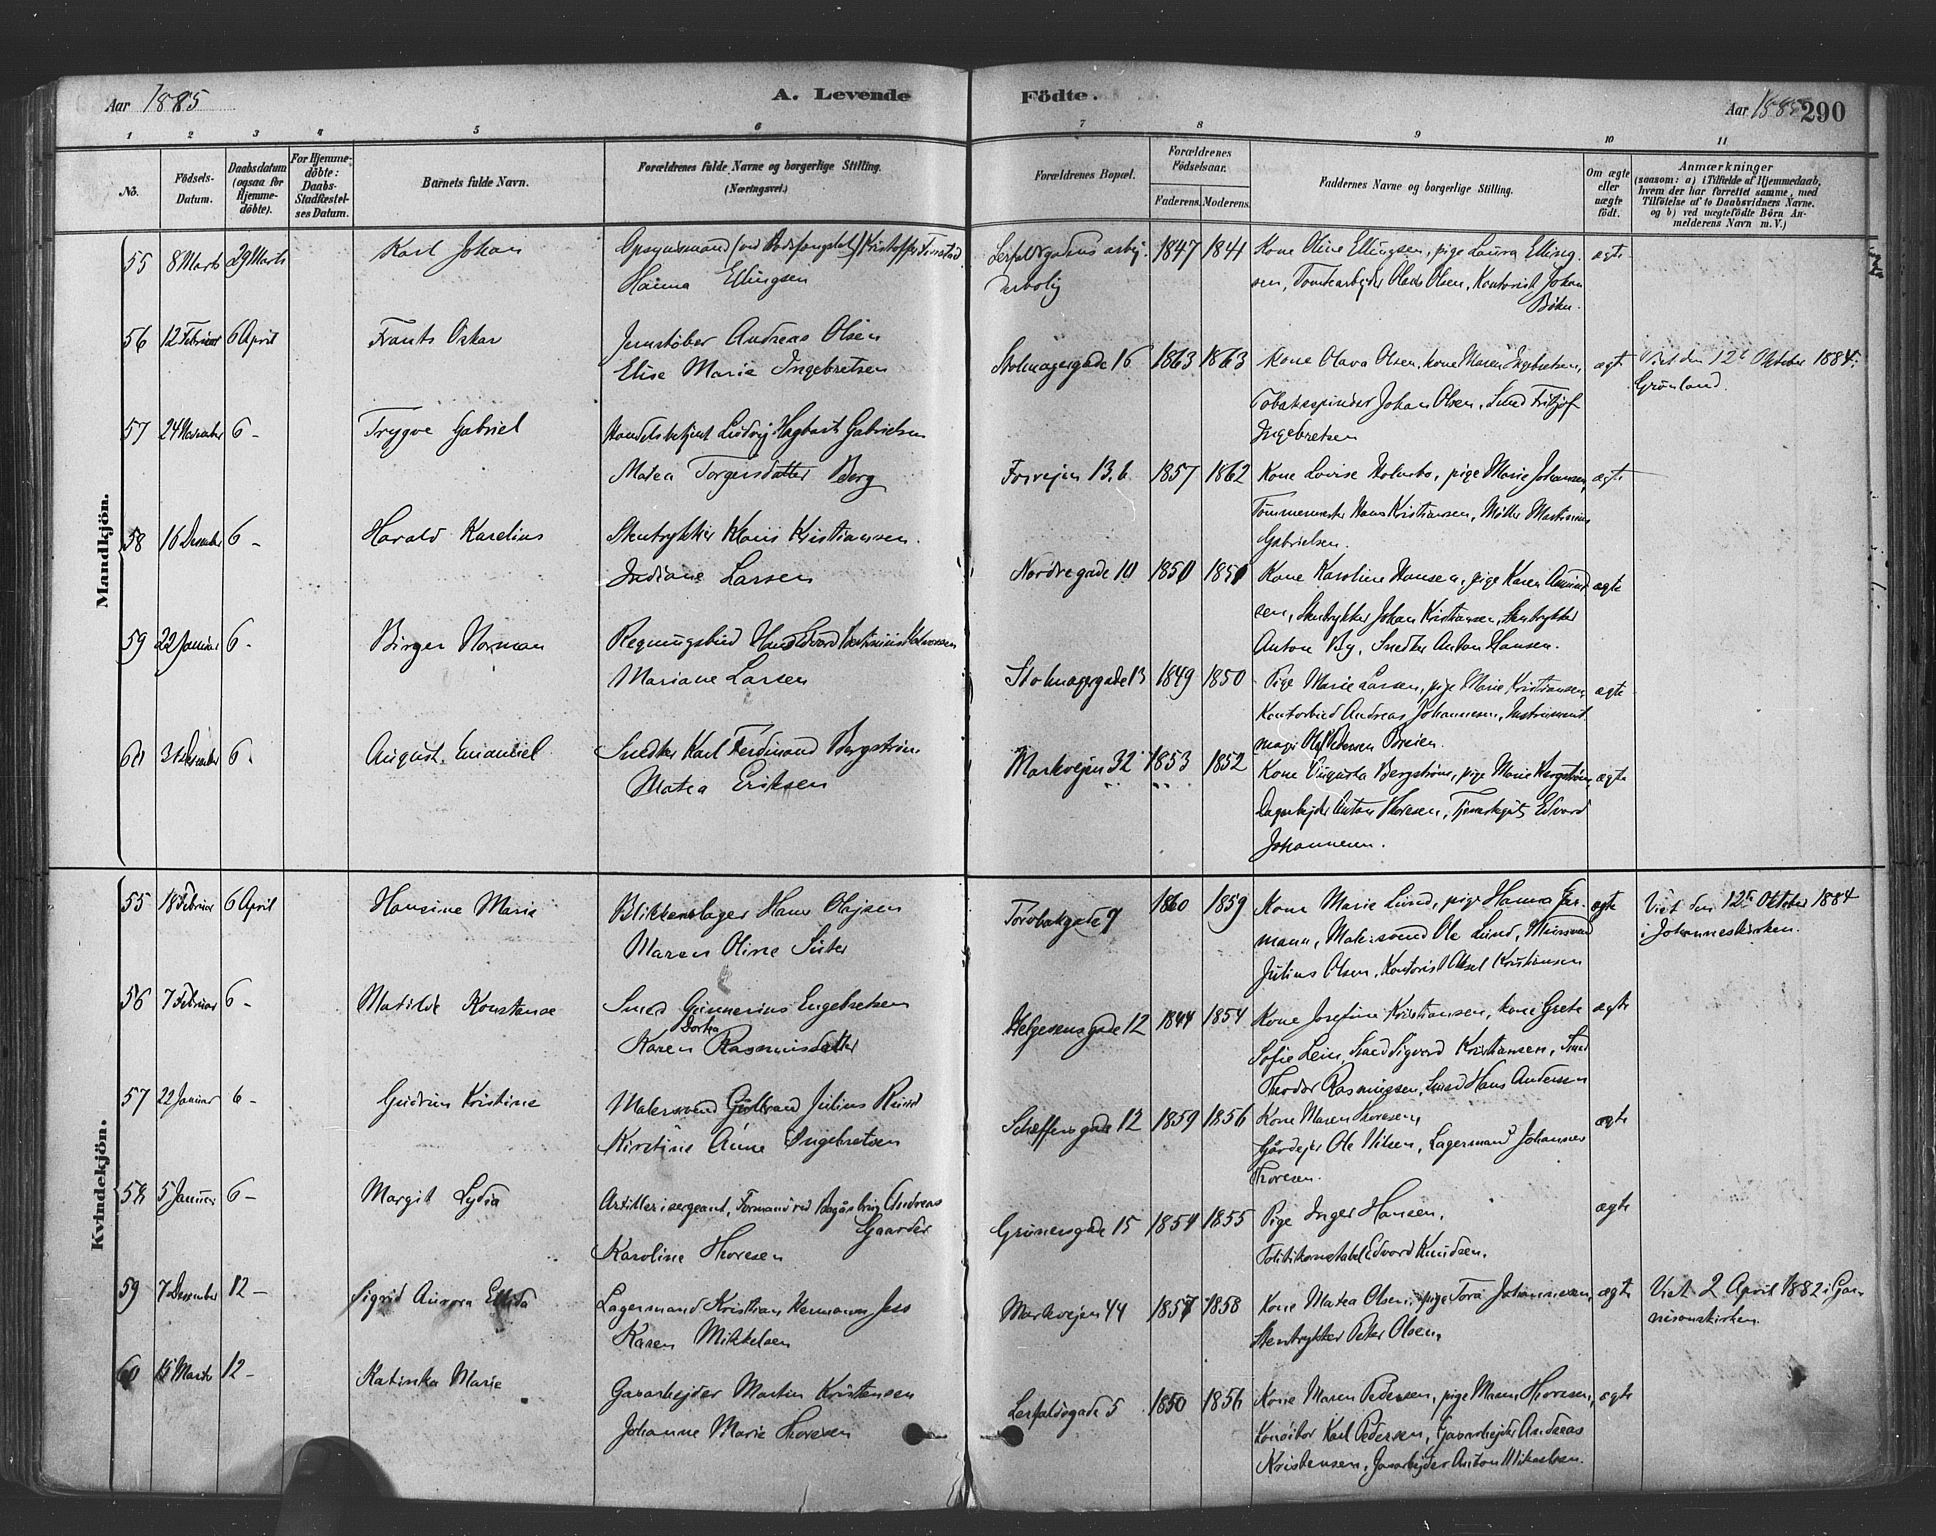 Aar 1885
A. Levende
Födte.
Aar 1885 290
1 2 3 4 5 6 7 8 9 10 11
No.
Födsels-
Datum.
Daabsdatum
(ogsaa for
Hjemme-
döbte).
For Hjemme-
döbte:
Daabs-
Stadfestel-
ses Datum.
Barnets fulde Navn.
Forældrenes fulde Navne og borgerlige Stilling.
(Næringsvei.)
Forældrenes Bopæl.
Forældrenes
Födselsaar.
Faderens. Moderens.
Faddernes Navne og borgerlige Stilling.
Om ægte
eller
uægte
født.
Anmærkninger
(saasom: a) i Tilfælde af Hjemmedaab,
hvem der har forrettet samme, med
Tilföielse af to Daabsvidners Navne.
og b) ved uægtefödte Börn An-
melderens Navn m. V.)
Mandkjön.
55 8 Marts 29 Marts Karl Johan
Opsynsmand (ved Bodsfængslet) Kristoffer
Hanna Ellingsen
1847 1841 Kone Oline Ellingsen, pige Laura Elling-
sen, Tomtearbejder Olaus Olsen, Kontorist Johan
ægte
56 12 Februar 6 April Frants Oskar
Jernstøber Andreas Olsen
Elise Marie Ingebretsen
Stolmagergade 16 1863 1863 Kone Olava Olsen, kone Maren Ingebretsen,
Tobakspinder Johan Olsen, Smed Fritjof
Ingebretsen
ægt Viet den 12te Oktober 1884.
Grønland.
57 24 November 6 - Trygve Gabriel
Handelsbetjent Ludvig Hagbart Gabrielsen
Matea Torgersdatter Berg
Fosvejen 13.b 1857 1862 Kone Lovise Holmbo, pige Marie Johansen,
Tømmermester Hans Kristiansen, Møller Martinius
Gabrielsen.
ægte
58 16 Desember 6 - Harald Karelius
Stentrykker Klaus Kristiansen
Indiane Larsen
Nordregade 10 1850 1851 Kone Karoline Hansen, pige Karen Amund-
sen, Stentrykker Johan Kristiansen, Stentrykker
Anton By, Snedker Anton Hansen.
ægte
59 22 Januar 6 - Birger Norman
Regningsbud Hans Edvard Martinius Halvorsen
Mariane Larsen
Stolmagergade 13 1849 1850 Pige Marie Larsen, pige Marie Kristiansen,
Kontorbud Andreas Johannesen, Instrument-
mager Olaf Pedersen Breien.
ægte
60 31 Desember 6 - August Emanuel
Snedker Karl Ferdinand Bergstrøm
Matea Eriksen
Markvejen 32 1853 1852 Kone Augusta Bergstrøm, pige Marie Bergstrøm,
Dagarbejder Anton Thoresen, Tjenestegut Edvard
Johannesen.
ægte
Kvindekjön.
55 18 Februar 6 April Hansine Marie
Blikkenslager Hans Olajsen
Maren Oline Suter
Torvbakgade 7 1860 1859 Kone Marie Lund, pige Hanna Jer-
mann, Malersvend Ole Lund, Murersvend
Julius Olsen, Kontorist Aksel Kristiansen
ægte Viet den 12te Oktober 1884
i Johanneskirken.
56 7 Februar 6 - Matilde Konstanse
Smed Gunnerius Engebretsen
Karen Dortea Rasmusdatter
Helgesensgade 12 1844 1854 Kone Josefine Kristiansen, kone Grete
Sofie Lein, Smed Sigvard Kristiansen, Smed
Theodor Rasmussen, Smed Hans Andersen
ægte
57 22 Januar 6 - Gudrun Kristine
Malersvend Gulbrand Julius Rund
Kirstine Anne Ingebretsen
Schæffersgade 12 1859 1856 Kone Maren Thoresen,
Gårdejer Ole Nilsen, Lagermand Johannes
Thoresen.
ægte
58 5 Januar 6 - Margit Lydia
Artillerisergeant, Formand ved Bagåsbrug Andreas
Gaarder
Karoline Thoresen
Grünersgade 15 1854 1855 Pige Inger Hansen,
Politikonstabel Edvard Knudsen.
ægte
59 7 Desember 12 - Sigrid Aurora Ellida
Lagermand Kristian Hermann Jess
Karen Mikkelsen
Markvejen 44 1857 1858 Kone Matea Olsen, pige Tora Johannesen,
Stentrykker Peter Olsen,
ægte Viet 2 April 1882 i Gar-
nisonskirken.
60 15 Marts 12 - Katinka Marie
Gasarbejder Martin Kristensen
Johanne Marie Thoresen
Lerfaldsgade 5 1850 1856 Kone Maren Pedersen, pige Maren Thoresen,
Konditor Karl Pedersen, Gasarbejder Andreas
Kristensen, Gasarbejder Anton Mikkelsen.
ægte